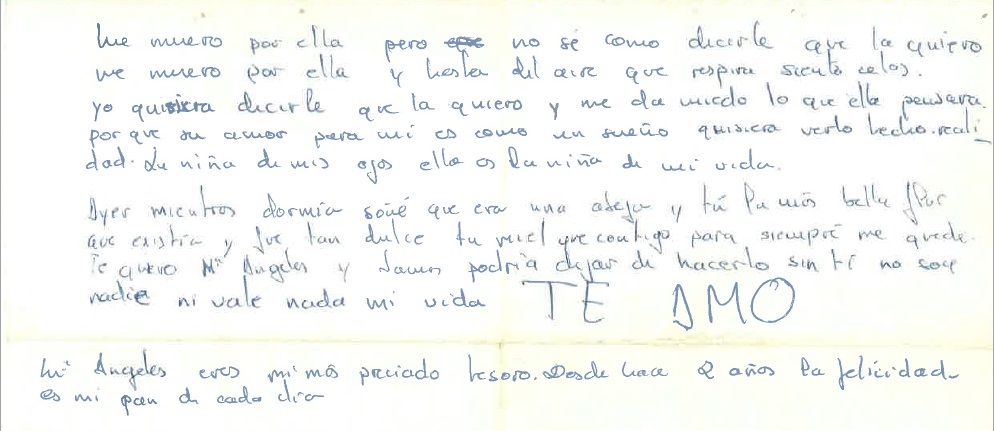 me muero por ella pero no sé como decirle que la quiero
me muero por ella y hasta del aire que respira siento celos.
yo quisiera decirle que la quiero y me da miedo lo que ella pensara.
porque su amor para mi es como un sueño quisiera verlo hecho reali_
dad. La niña de mis ojos ella es la niña de mi vida.
Ayer mientras dormía soñé que era una abeja y tú la más bella flor
que existía y fue tan dulce tu miel que contigo para siempre me quede.
Te quiero Mª Angeles y Jamas podría dejar de hacerlo sin tí no soy
nadie ni vale nada mi vida TE AMO
Mª Angeles eres mi más preciado tesoro. Desde hace 2 años la felicidad
es mi pan de cada día